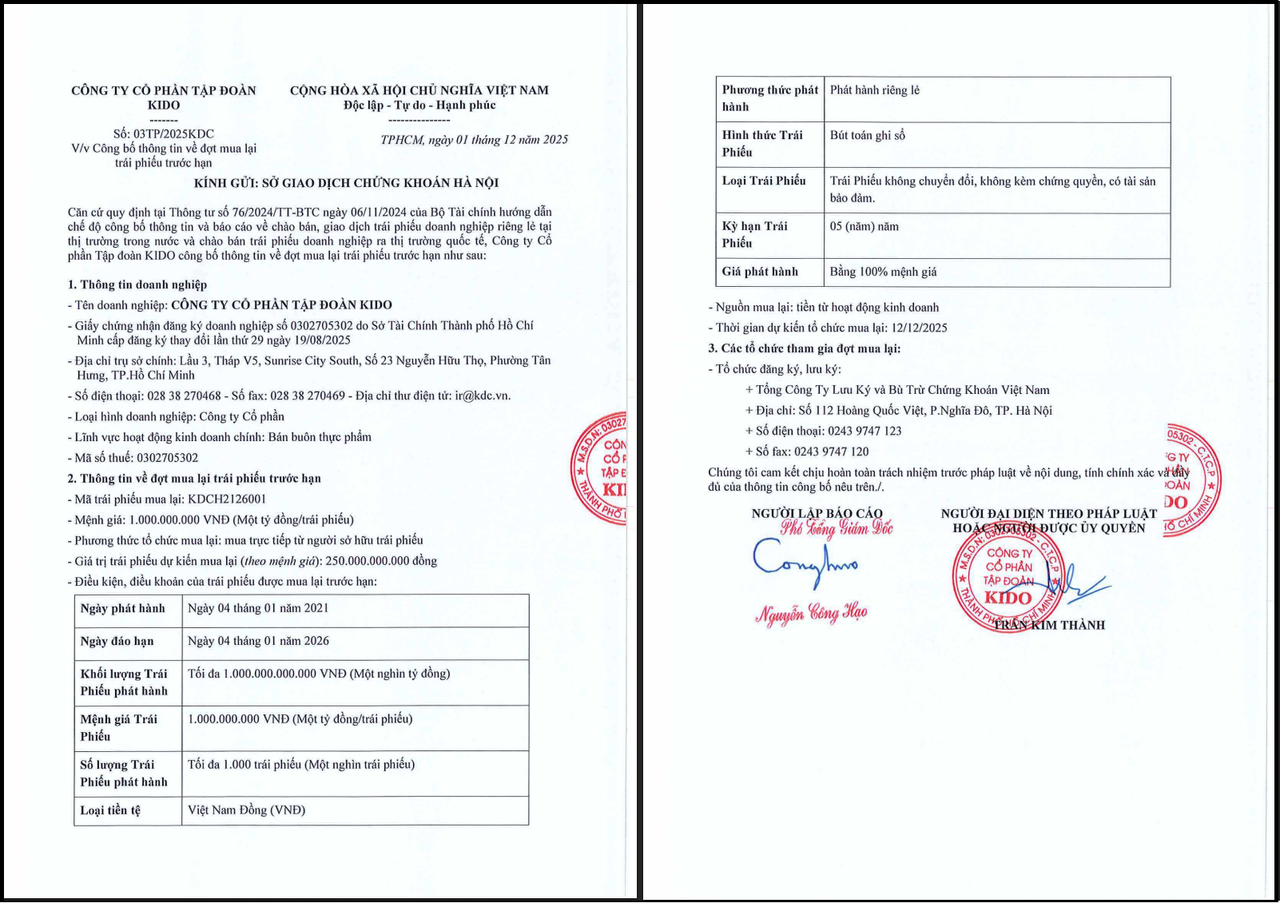 CÔNG TY CỔ PHẦN TẬP ĐOÀN
KIDO
-------
Số: 03TP/2025KDC
V/v Công bố thông tin về đợt mua lại
trái phiếu trước hạn
CỘNG HÒA XÃ HỘI CHỦ NGHĨA VIỆT NAM
Độc lập - Tự do - Hạnh phúc
---------------
TPHCM, ngày 01 tháng 12 năm 2025
KÍNH GỬI: SỞ GIAO DỊCH CHỨNG KHOÁN HÀ NỘI
Căn cứ quy định tại Thông tư số 76/2024/TT-BTC ngày 06/11/2024 của Bộ Tài chính hướng dẫn
chế độ công bố thông tin và báo cáo về chào bán, giao dịch trái phiếu doanh nghiệp riêng lẻ tại
thị trường trong nước và chào bán trái phiếu doanh nghiệp ra thị trường quốc tế, Công ty Cổ
phần Tập đoàn KIDO công bố thông tin về đợt mua lại trái phiếu trước hạn như sau:
1. Thông tin doanh nghiệp
- Tên doanh nghiệp: CÔNG TY CỔ PHẦN TẬP ĐOÀN KIDO
- Giấy chứng nhận đăng ký doanh nghiệp số 0302705302 do Sở Tài Chính Thành phố Hồ Chí
Minh cấp đăng ký thay đổi lần thứ 29 ngày 19/08/2025
- Địa chỉ trụ sở chính: Lầu 3, Tháp V5, Sunrise City South, Số 23 Nguyễn Hữu Thọ, Phường Tân
Hưng, TP.Hồ Chí Minh
- Số điện thoại: 028 38 270468 - Số fax: 028 38 270469 - Địa chỉ thư điện tử: ir@kdc.vn.
- Loại hình doanh nghiệp: Công ty Cổ phần
- Lĩnh vực hoạt động kinh doanh chính: Bán buôn thực phẩm
- Mã số thuế: 0302705302
2. Thông tin về đợt mua lại trái phiếu trước hạn
- Mã trái phiếu mua lại: KDCH2126001
- Mệnh giá: 1.000.000.000 VNĐ (Một tỷ đồng/trái phiếu)
- Phương thức tổ chức mua lại: mua trực tiếp từ người sở hữu trái phiếu
- Giá trị trái phiếu dự kiến mua lại (theo mệnh giá): 250.000.000.000 đồng
- Điều kiện, điều khoản của trái phiếu được mua lại trước hạn:
Ngày phát hành Ngày 04 tháng 01 năm 2021
Ngày đáo hạn Ngày 04 tháng 01 năm 2026
Khối lượng Trái
Phiếu phát hành Tối đa 1.000.000.000.000 VNĐ (Một nghìn tỷ đồng)
Mệnh giá Trái
Phiếu 1.000.000.000 VNĐ (Một tỷ đồng/trái phiếu)
Số lượng Trái
Phiếu phát hành Tối đa 1.000 trái phiếu (Một nghìn trái phiếu)
Loại tiền tệ Việt Nam Đồng (VNĐ)
Phương thức phát
hành Phát hành riêng lẻ
Hình thức Trái
Phiếu Bút toán ghi sổ
Loại Trái Phiếu Trái Phiếu không chuyển đổi, không kèm chứng quyền, có tài sản
bảo đảm.
Kỳ hạn Trái
Phiếu 05 (năm) năm
Giá phát hành Bằng 100% mệnh giá
- Nguồn mua lại: tiền từ hoạt động kinh doanh
- Thời gian dự kiến tổ chức mua lại: 12/12/2025
3. Các tổ chức tham gia đợt mua lại:
- Tổ chức đăng ký, lưu ký:
+ Tổng Công Ty Lưu Ký và Bù Trừ Chứng Khoán Việt Nam
+ Địa chỉ: Số 112 Hoàng Quốc Việt, P.Nghĩa Đô, TP. Hà Nội
+ Số điện thoại: 0243 9747 123
+ Số fax: 0243 9747 120
Chúng tôi cam kết chịu hoàn toàn trách nhiệm trước pháp luật về nội dung, tính chính xác và đầy
đủ của thông tin công bố nêu trên./.
NGƯỜI LẬP BÁO CÁO
Phó Tổng Giám Đốc
Nguyễn Công Hạo
NGƯỜI ĐẠI DIỆN THEO PHÁP LUẬT
HOẶC NGƯỜI ĐƯỢC ỦY QUYỀN
M.S.D.N: 0302705302 - C.T.C.P
CÔNG TY
CỔ PHẦN
TẬP ĐOÀN
KIDO
THÀNH PHỐ HỒ CHÍ MINH
TRẦN KIM THÀNH